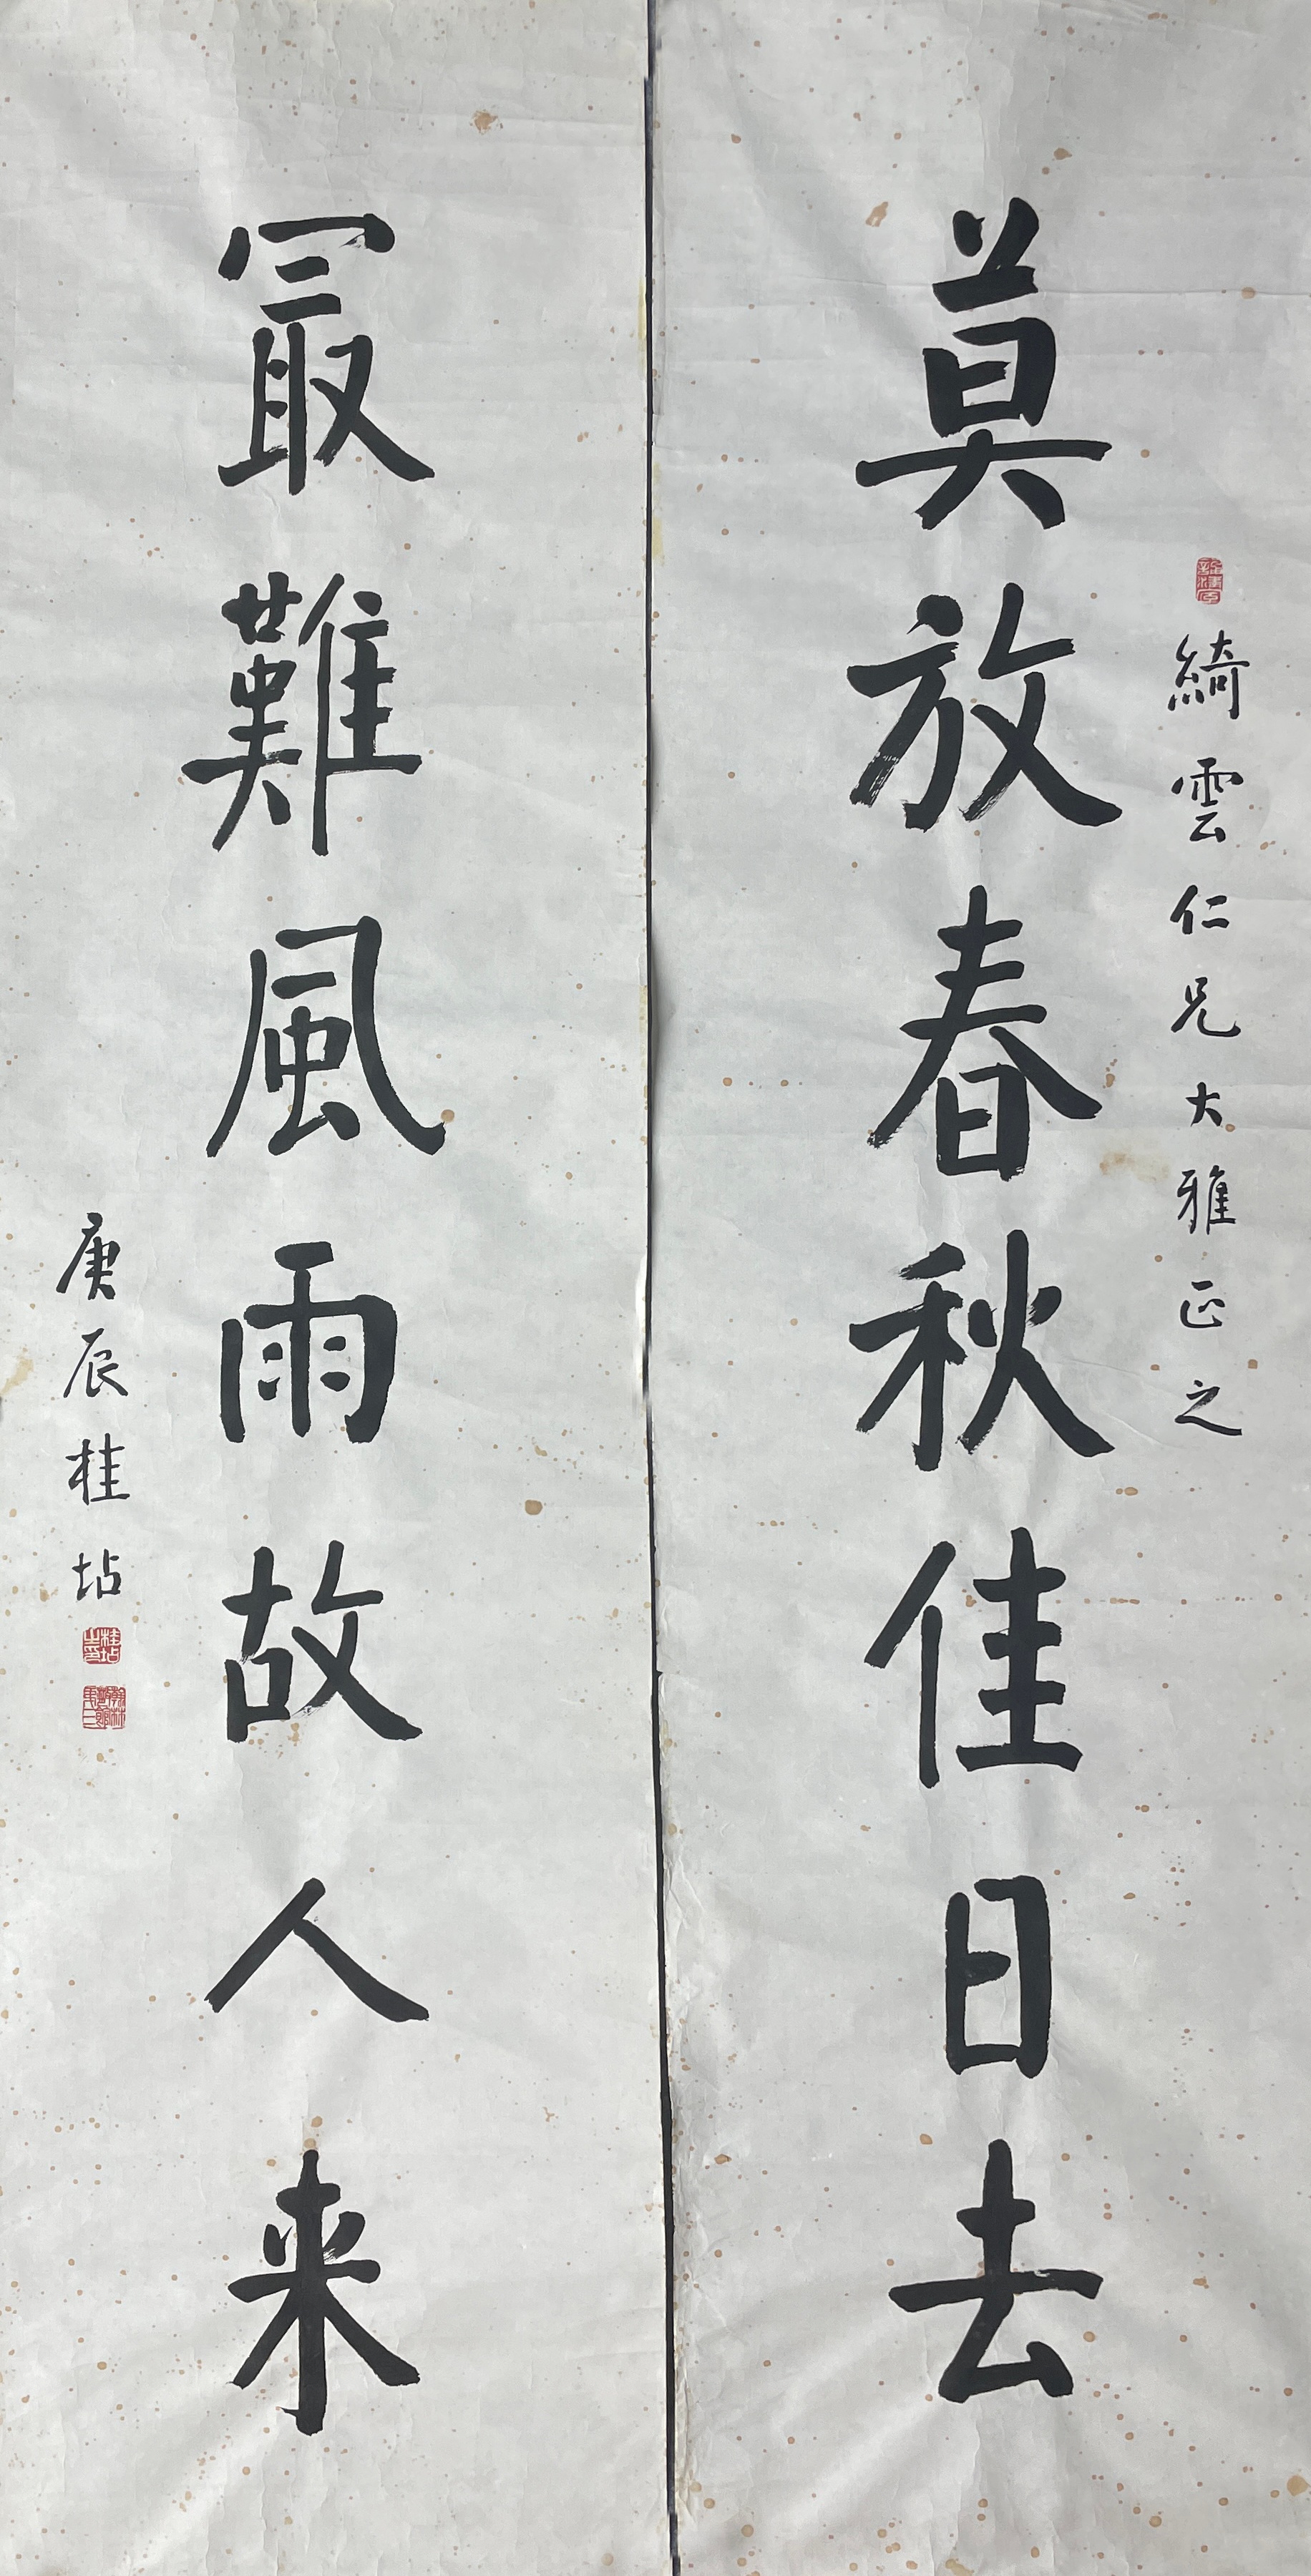 綺雲仁兄大雅正之
莫放春秋佳日去
冣難風雨故人来
庚辰桂坫
桂坫之印